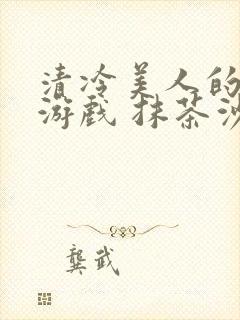 清冷美人的
游戏 抹茶沙
龚武